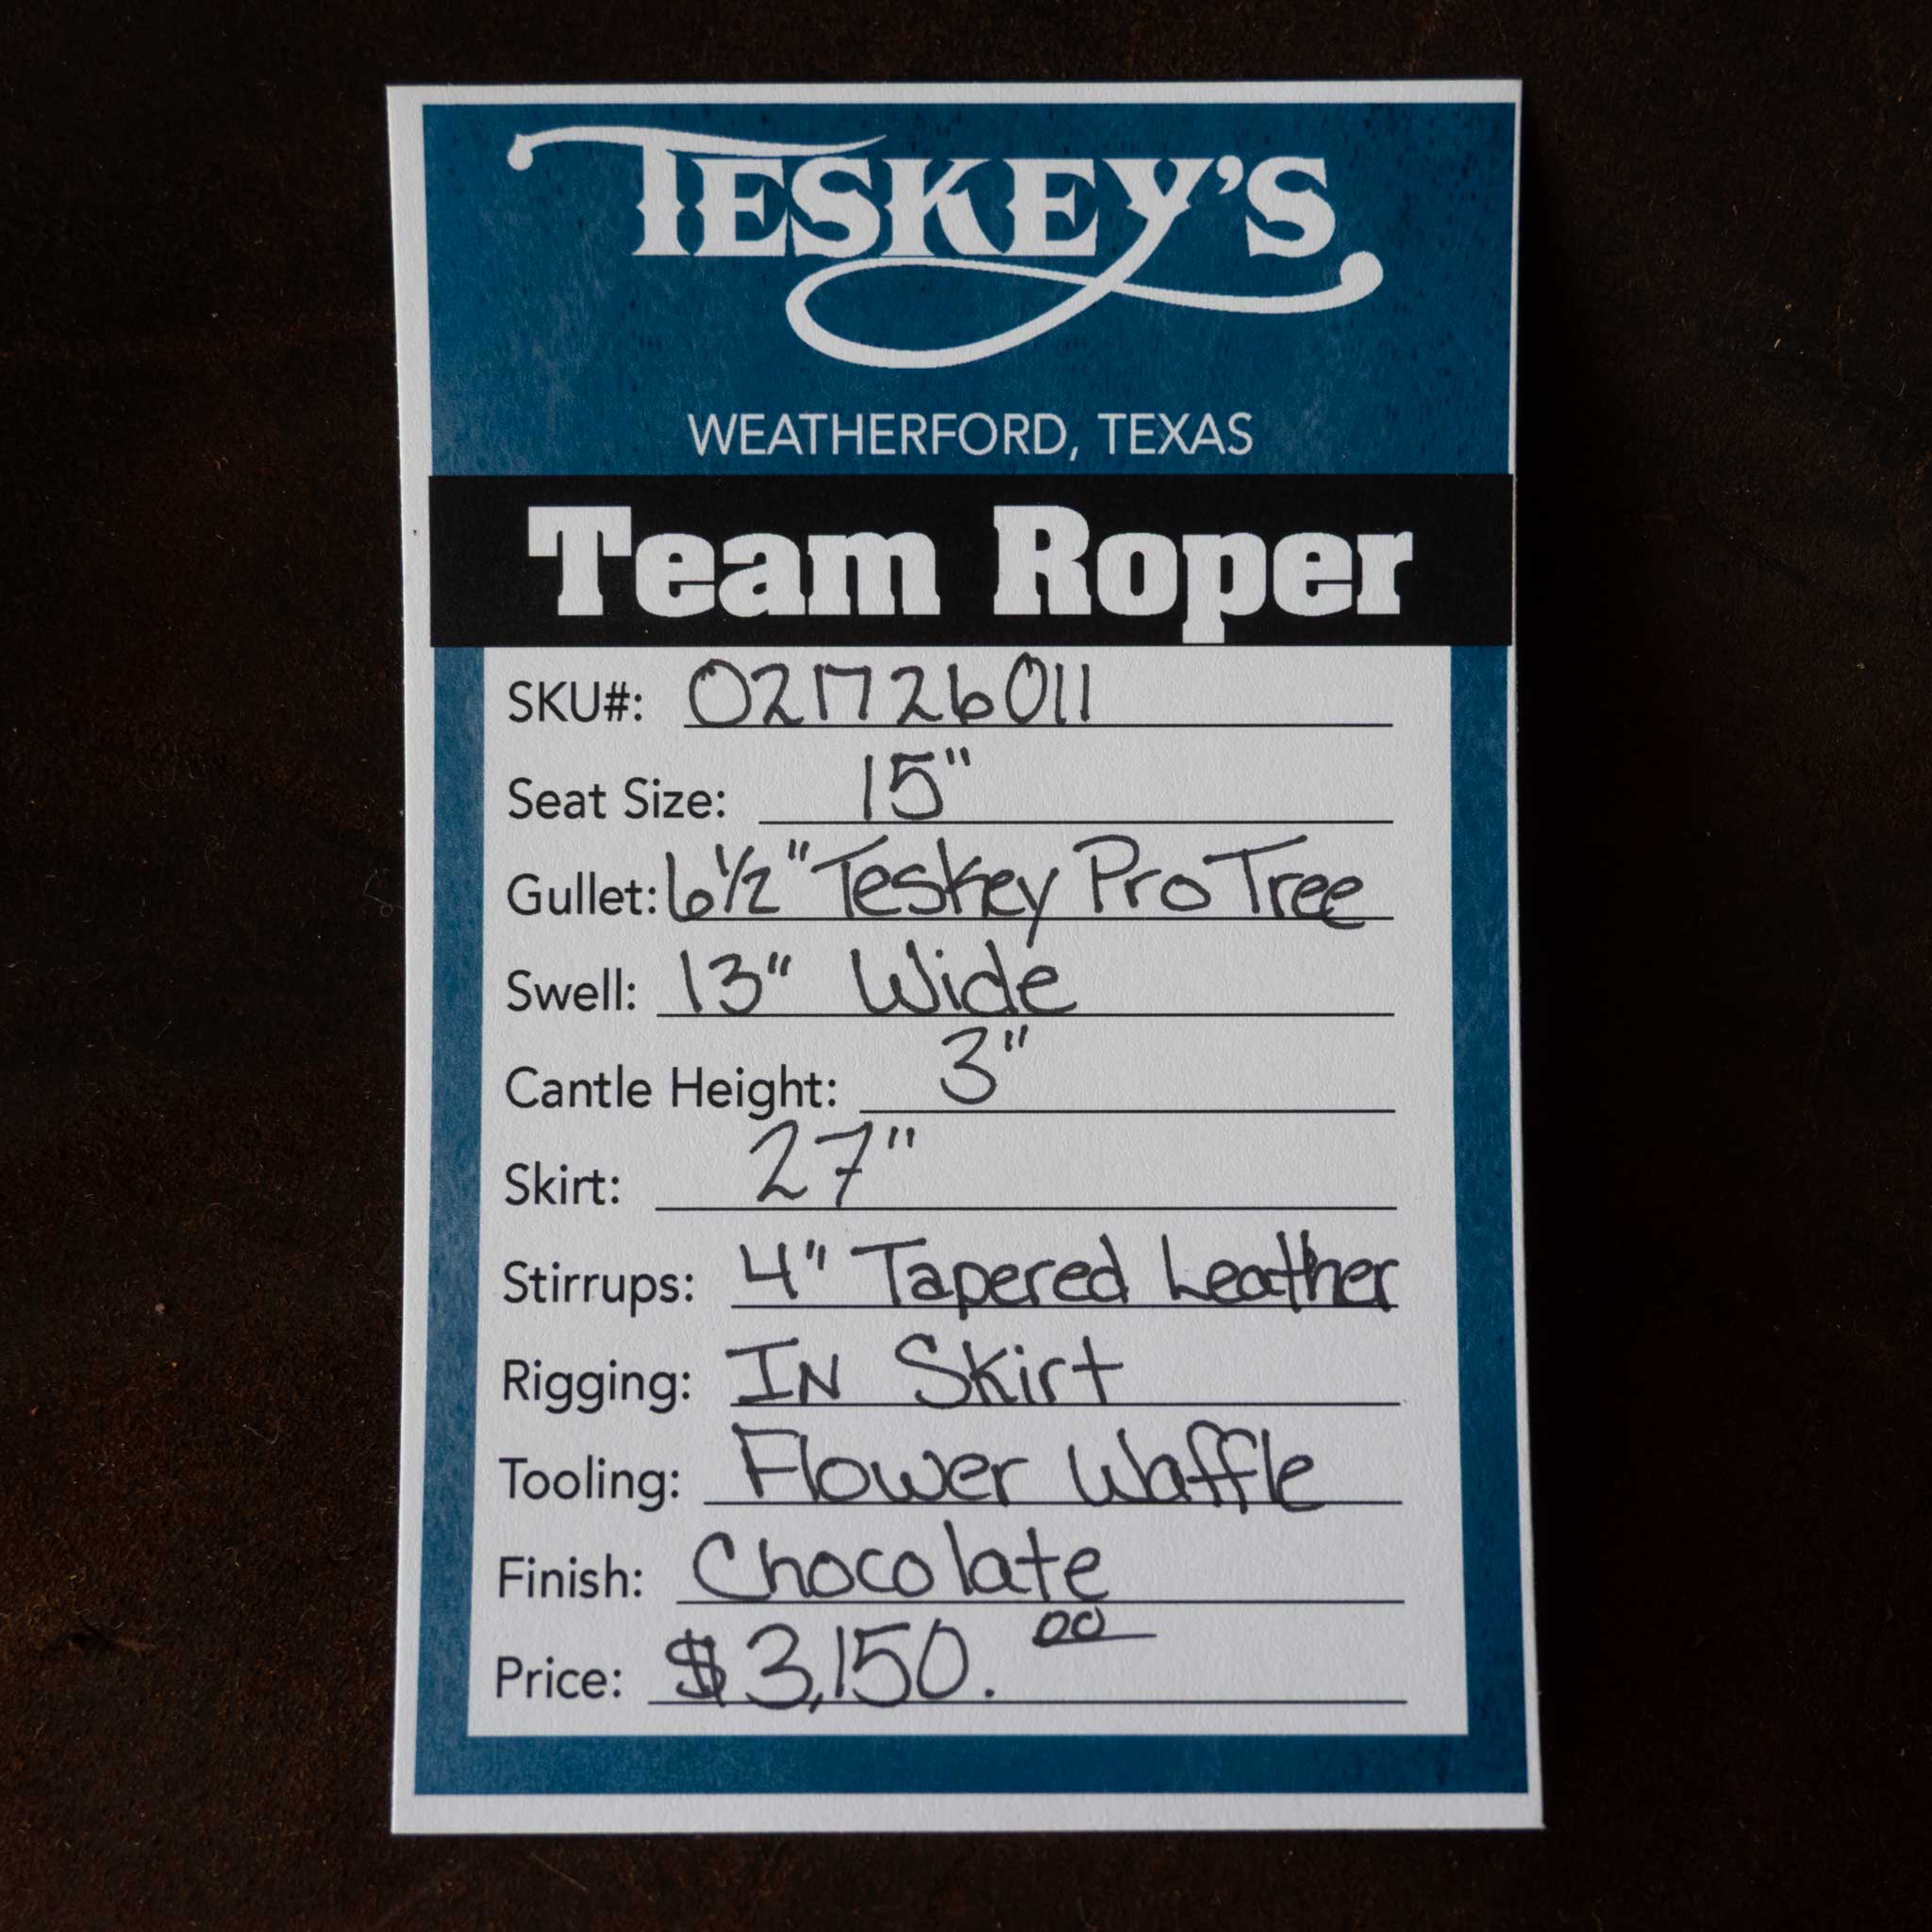 TESKEY'S
WEATHERFORD, TEXAS
Team Roper
SKU#: 021726011
Seat Size: 15"
Gullet: 6 1/2" Teskey Pro Tree
Swell: 13" Wide
Cantle Height: 3"
Skirt: 27"
Stirrups: 4" Tapered Leather
Rigging: IN Skirt
Tooling: Flower Waffle
Finish: Chocolate
Price: $3,150.00